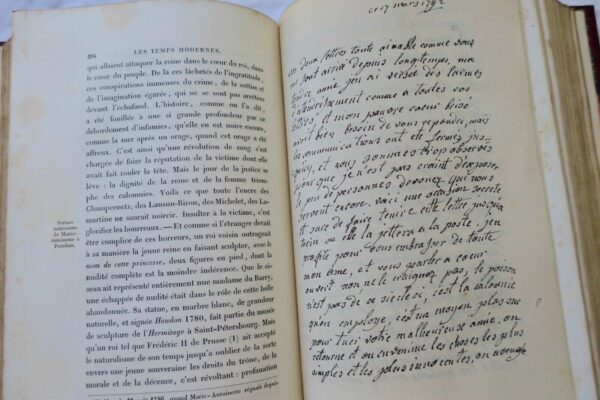 294
LES TEMPS MODERNES.
qui allaient attaquer la reine dans le cœur du roi, dans
le cœur du peuple. De là ces lâchetés de l'ingratitude,
ces conspirations immenses du crime, de la sottise et
de l'imagination égarée, qui ne se sont pas arrêtées
devant l'échafaud. L'histoire, comme on l'a dit,
a été fouillée à une si grande profondeur par ce
débordement d'infamies, qu'elle en est noire encore,
comme la mer après un orage, quand cet orage a été
affreux. C'est ainsi qu'une révolution de sang s'est
chargée de faire la réputation de la victime dont elle
avait fait rouler la tête. Mais le jour de la justice se
lève : la dignité de la reine et de la femme triom-
phe des calomnies. Voilà ce que toute l'encre des
Champcenetz, des Lauzun-Biron, des Michelet, des La-
martine ne saurait noircir. Insulter à la victime, c'est
glorifier les bourreaux. — Et comme si l'étranger devait
être complice de ces horreurs, un roi voisin outrageait
à sa manière la jeune reine en faisant sculpter, avec le
nom de cette princesse, deux figures en pied, dont la
nudité complète est la moindre indécence. Que le ci-
seau ait représenté entièrement nue madame du Barry,
une échappée de nudité était dans le rôle de cette belle
abandonnée. Sa statue, en marbre blanc, de grandeur
naturelle, et signée Houdon 1780, fait partie du musée
de sculpture de l'Hermitage à Saint-Pétersbourg. Mais
qu'un roi tel que Frédéric II de Prusse (1) ait accepté
le naturalisme de son temps jusqu'à oublier la sorte
envers une jeune souveraine les droits du trône, de la
morale et de la décence, c'est révoltant : profanation
Statues
indécentes
de Marie-
Antoinette à
Potsdam.
1786, quand Marie-Antoinette régnait depuis
ce 17 mars 1792
vos deux lettres toute aimable comme vous
sont arrivé depuis longtemps, ma
chère ame jen ai versée des larmes
d'attendrissement comme a toutes vos
lettres, et mon pauvre coeur brisé
avait bien besoin de vous repondre, mais
les communications ont été fermés jus-
quicy, et nous sommes trop observés
pour que je n'est pas craint d'exposer
le peu de personnes devouez qui nous
servent encore. vaici une occasion secrete
et sure de faire tenir cette lettre jusqua
turin ou elle la jettera a la poste. jen
profite pour vous embrasser de toute
mon ame, et vous parler a coeur
ouvert non, ne le craignez pas, le poison
n'est pas de ce siecle ci, c'est la calomnie
qu'on employe, c'est un moyen plus sur
pour tuer votre malheureuse amie. on
retourne et on envenime les choses les plus
simples et les plus innocentes, on aveugle